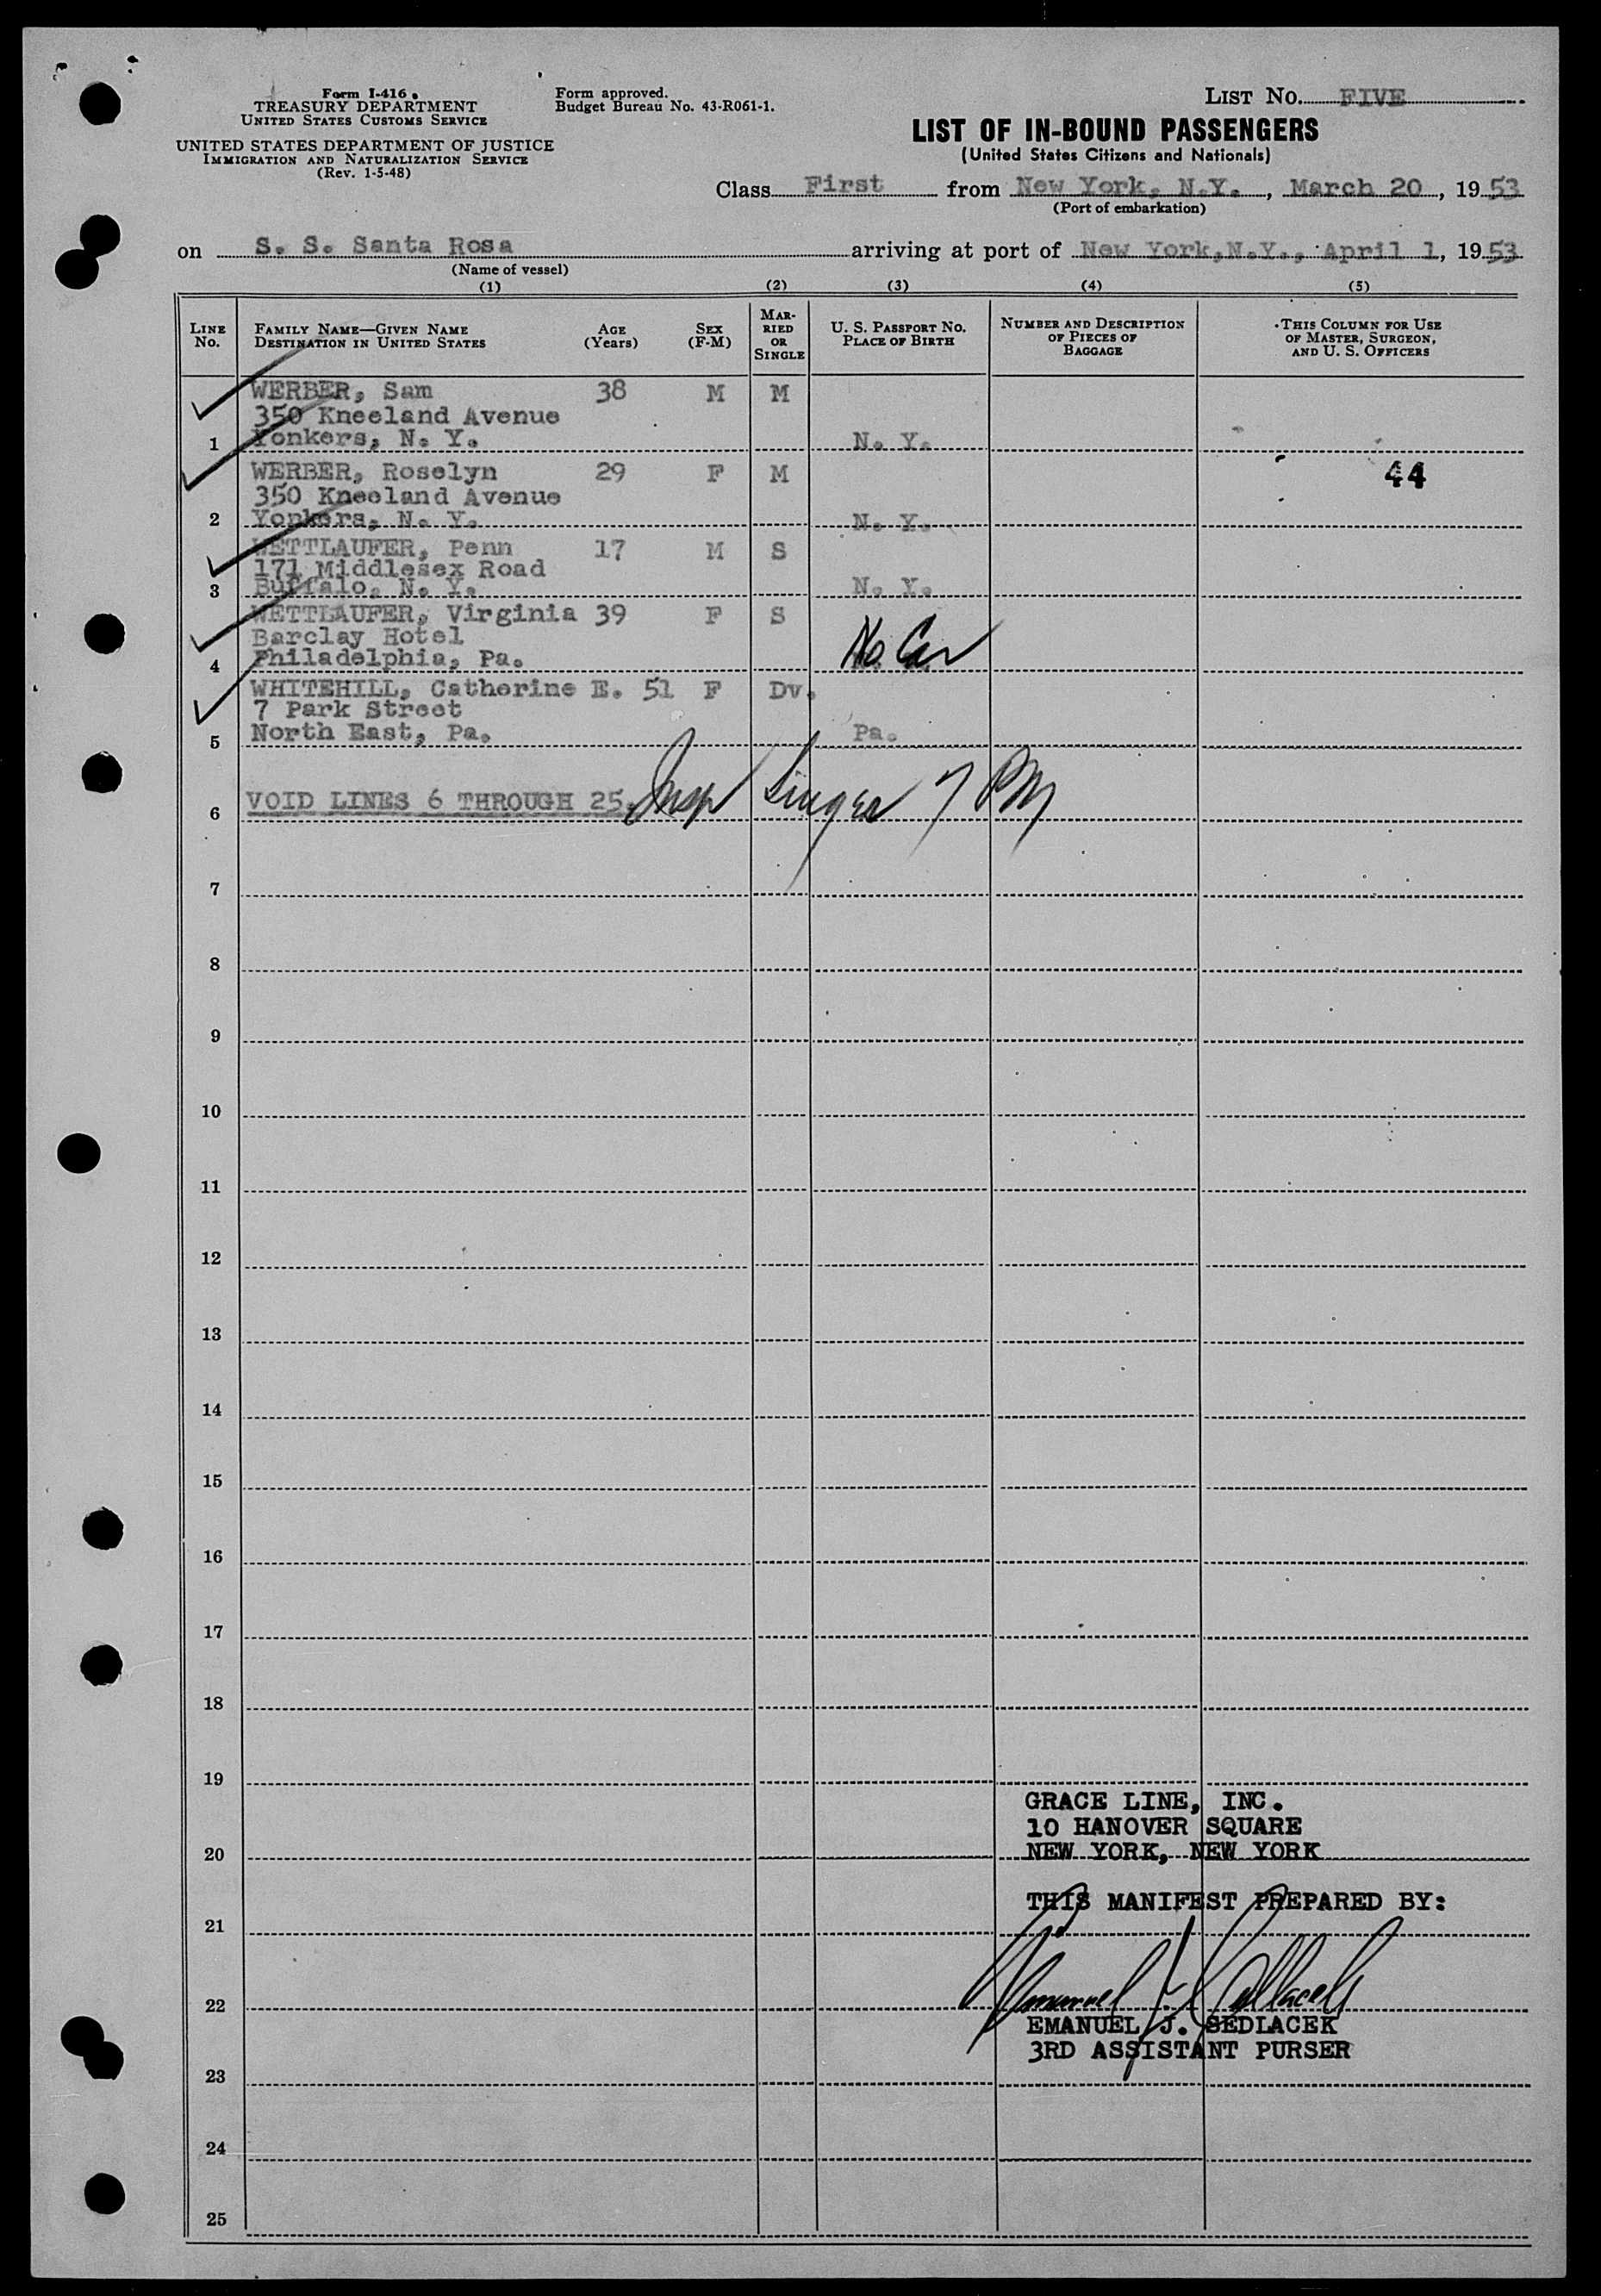 Form I-416
TREASURY DEPARTMENT
UNITED STATES CUSTOMS SERVICE
UNITED STATES DEPARTMENT OF JUSTICE
IMMIGRATION AND NATURALIZATION SERVICE
(Rev. 1-5-48)
Form approved.
Budget Bureau No. 43-R061-1.
LIST NO. FIVE
LIST OF IN-BOUND PASSENGERS
(United States Citizens and Nationals)
Class First from New York, N.Y., March 20, 1953
(Port of embarkation)
on S. S. Santa Rosa arriving at port of New York, N.Y., April 1, 1953
(Name of vessel)
(1) (2) (3) (4) (5)
LINE NO.
FAMILY NAME—GIVEN NAME
DESTINATION IN UNITED STATES
AGE (Years)
SEX (F-M)
MARRIED OR SINGLE
U. S. PASSPORT NO.
PLACE OF BIRTH
NUMBER AND DESCRIPTION OF PIECES OF BAGGAGE
THIS COLUMN FOR USE OF MASTER, SURGEON, AND U. S. OFFICERS
WERBER, Sam 38 M M
350 Kneeland Avenue
1 Yonkers, N. Y. N. Y.
WERBER, Roselyn 29 F M 44
350 Kneeland Avenue
2 Yonkers, N. Y. N. Y.
WETTLAUFER, Penn 17 M S
171 Middlesex Road
3 Buffalo, N. Y. N. Y.
WETTLAUFER, Virginia 39 F S
Barclay Hotel
4 Philadelphia, Pa. No. Car
WHITEHILL, Catherine E. 51 F Dv.
7 Park Street
5 North East, Pa. Pa.
6 VOID LINES 6 THROUGH 25. Insp Singer 7 PM
7
8
9
10
11
12
13
14
15
16
17
18
19
GRACE LINE, INC.
10 HANOVER SQUARE
20 NEW YORK, NEW YORK
THIS MANIFEST PREPARED BY:
21
22 Emanuel J. Sedlacek
EMANUEL J. SEDLACEK
3RD ASSISTANT PURSER
23
24
25